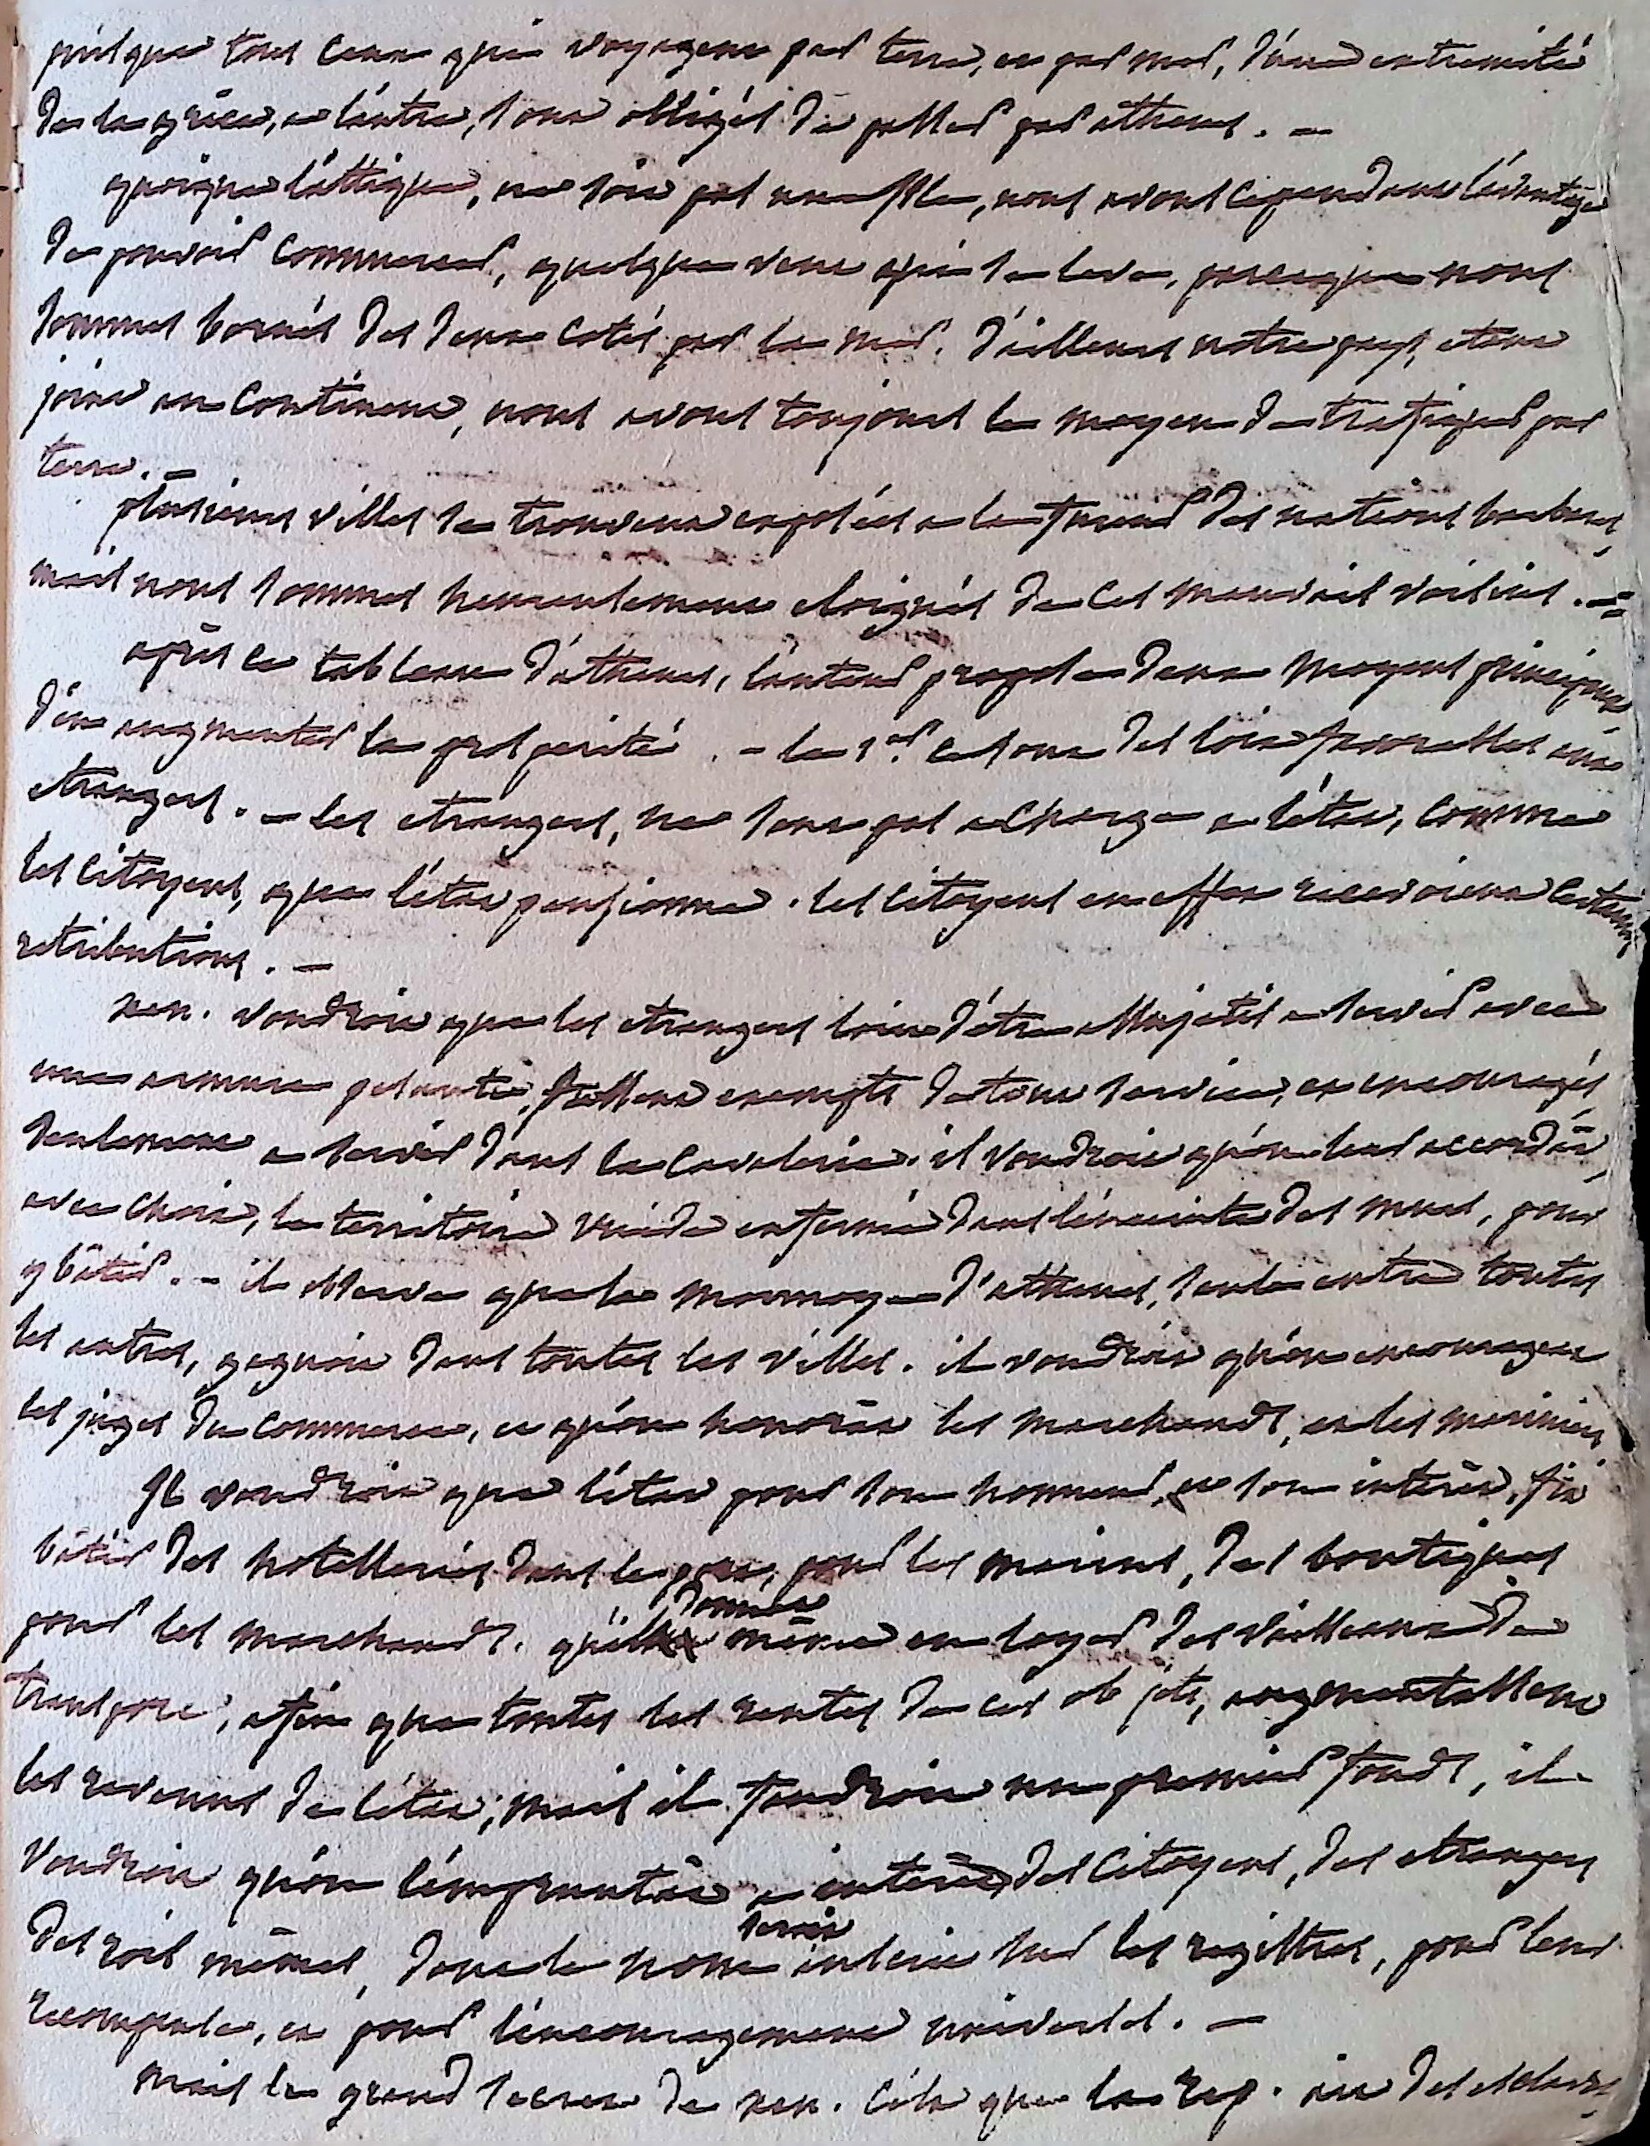 puisque tous ceux qui voyagent par terre, et par mer, d'une extremité
de la grèce, a l'autre, sont obligés de passer par athenes. —
quoique l'attique, ne soit pas une isle, nous avons cependant l'avantage
de pouvoir commercer, quelque vent qui se leve, parceque nous
sommes bornés des deux cotés par la mer. d'ailleurs notre pays, etant
joint au continent, nous avons toujours le moyen de trafiquer par
terre. —
plusieurs villes se trouvent exposées a la fureur des nations barbares,
mais nous sommes heureusement eloignés de ces mauvais voisins. =
après ce tableau d'athenes, l'auteur propose deux moyens principaux
d'en augmenter la prosperité. — le 1er. ce sont des loix favorables aux
etrangers. — les etrangers, ne sont pas a charge a l'état, comme
les citoyens, que l'état pensionne. les citoyens en effet recevoient certaines
retributions. —
xen. voudroit que les etrangers loin d'être assujetis a servir avec
une armure pesante, fussent exempts de tout service, et encouragés
seulement a servir dans la cavalerie. il voudroit qu'on leur accordât,
avec choix, le territoire vuide enfermé dans l'enceinte des murs, pour
y bâtir. — il observe que la monnoye d'athenes, seule entre toutes
les autres, gagnoit dans toutes les villes. il voudroit qu'on encourageat
les juges du commerce, et qu'on honorât les marchands, et les mariniers.
Il voudroit que l'état pour son honneur, et son intérêt, fit
bâtir des hotelleries dans le port, pour les marins, des boutiques
pour les marchands. qu'il donnat même en loyer des vaisseaux de
transport, afin que toutes les rentes de ces objets, augmentassent
les revenus de l'état; mais il faudroit un premier fonds, il
voudroit qu'on l'empruntât a intérêt, des citoyens, des etrangers
des rois mêmes, dont le nom seroit inscrit sur les registres, pour leur
recompense, et pour l'encouragement universel. —
mais le grand secret de xen. c'est que la rep. ait des esclaves,